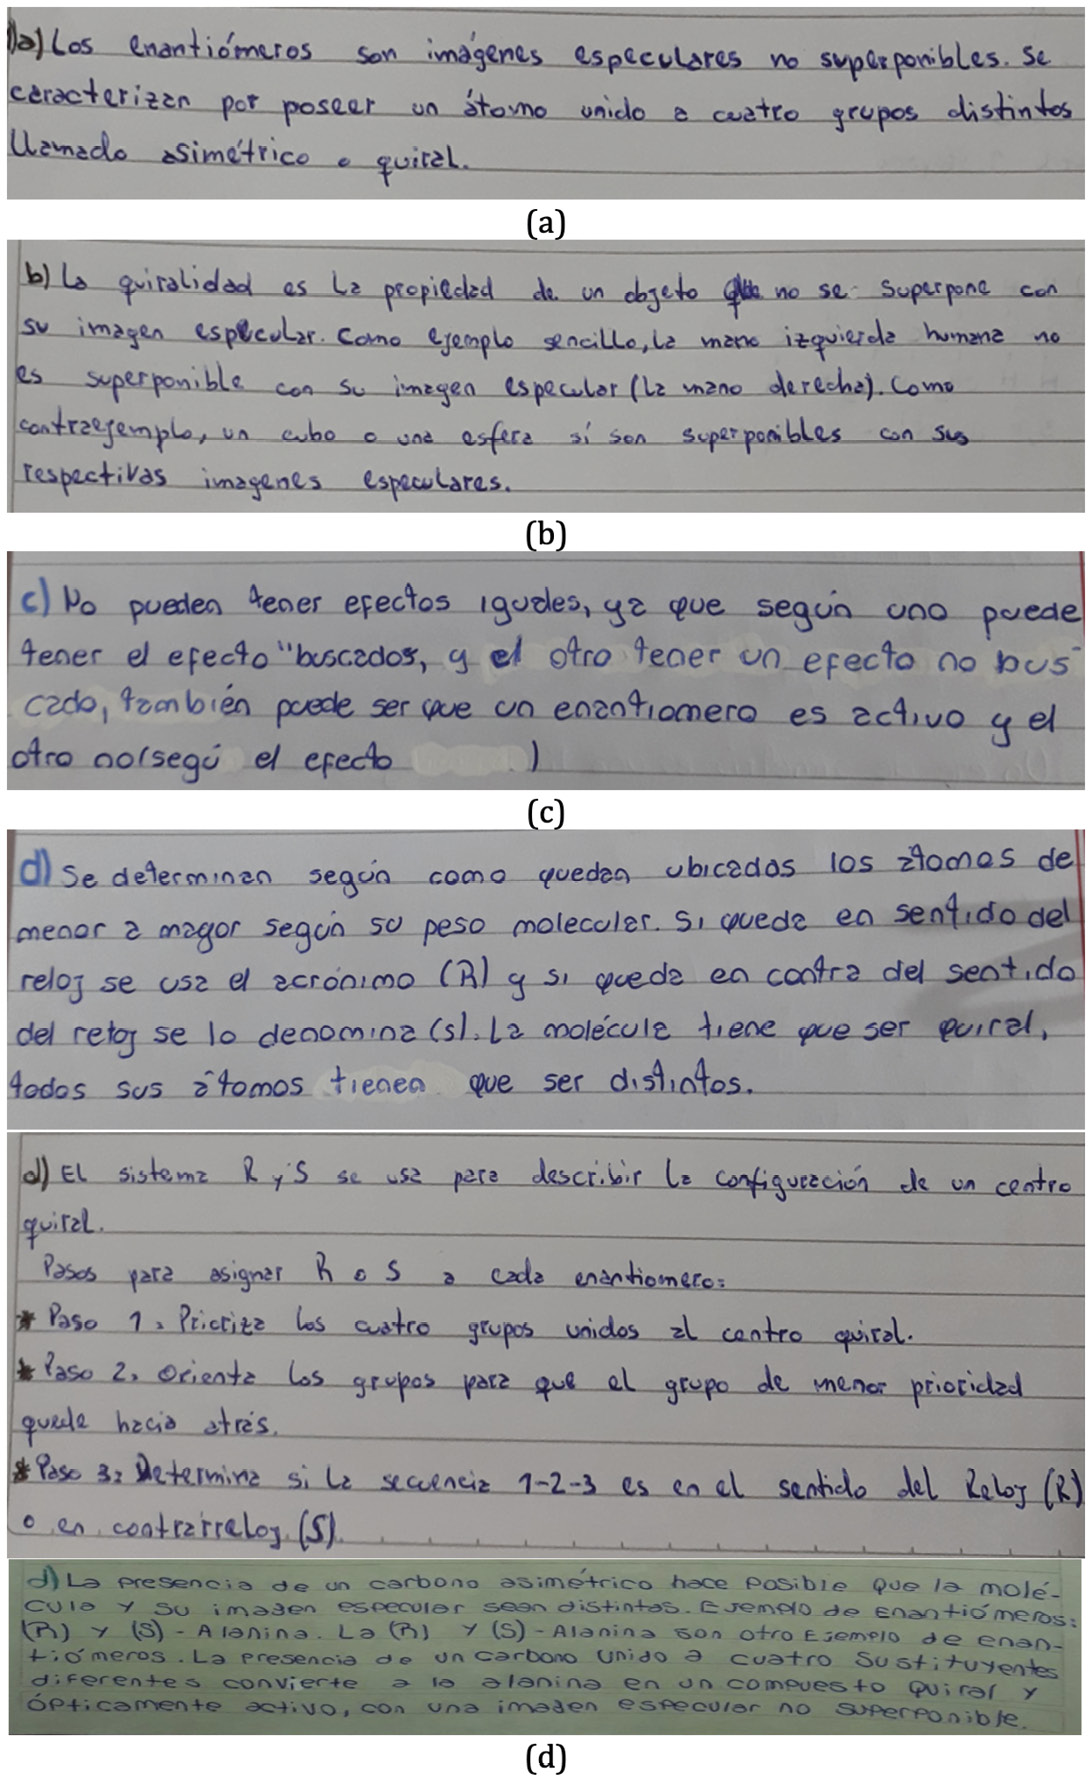 1)a) Los enantiómeros son imágenes especulares no superponibles. Se
caracterizan por poseer un átomo unido a cuatro grupos distintos
llamado asimétrico o quiral.
(a)
b) La quiralidad es la propiedad de un objeto que no se superpone con
su imagen especular. Como ejemplo sencillo, la mano izquierda humana no
es superponible con su imagen especular (la mano derecha). Como
contraejemplo, un cubo o una esfera sí son superponibles con sus
respectivas imagenes especulares.
(b)
c) No pueden tener efectos iguales, ya que según uno puede
tener el efecto "buscados, y el otro tener un efecto no bus-
cado, también puede ser que un enantiomero es activo y el
otro no(segú el efecto )
(c)
d) Se determinan según como quedan ubicados los átomos de
menor a mayor según su peso molecular. Si queda en sentido del
reloj se usa el acrónimo (R) y si queda en contra del sentido
del reloj se lo denomina (s). La molécula tiene que ser quiral,
todos sus átomos tienen que ser distintos.
d) El sistema R y S se usa para describir la configuración de un centro
quiral.
Pasos para asignar R o S a cada enantiomero:
* Paso 1. Prioriza los cuatro grupos unidos al centro quiral.
* Paso 2. Orienta los grupos para que el grupo de menor prioridad
quede hacia atrás.
* Paso 3: Determina si la secuencia 1-2-3 es en el sentido del Reloj (R)
o en contrarreloj (S).
d) La presencia de un carbono asimétrico hace posible que la molé-
cula y su imagen especular sean distintas. Ejemplo de Enantiómeros:
(R) y (S) - Alanina. La (R) y (S) - Alanina son otro Ejemplo de enan-
tiómeros. La presencia de un carbono unido a cuatro sustituyentes
diferentes convierte a la alanina en un compuesto quiral y
ópticamente activo, con una imagen especular no superponible.
(d)